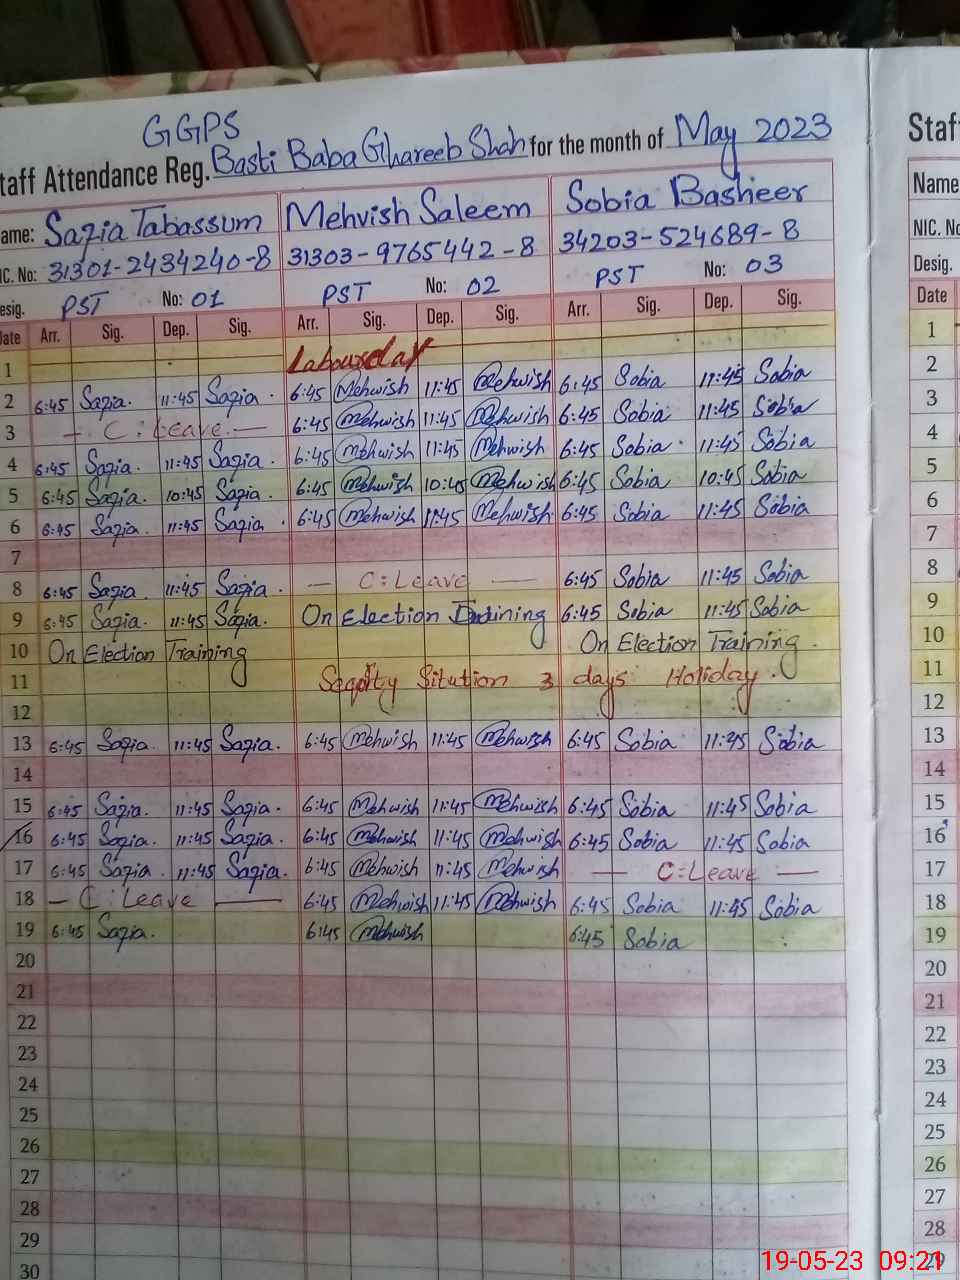 GGPS
taff Attendance Reg. Basti Baba Ghareeb Shah for the month of May 2023 Staf
ame: Sazia Tabassum Mehvish Saleem Sobia Basheer Name
IC. No: 31301-2434240-8 31303-9765442-8 34203-524689-8 NIC. No
esig. PST No: 01 PST No: 02 PST No: 03 Desig.
Date Arr. Sig. Dep. Sig. Arr. Sig. Dep. Sig. Arr. Sig. Dep. Sig. Date
1 Labourday 1
2 6:45 Sazia. 11:45 Sazia. 6:45 Mehwish 11:45 Mehwish 6:45 Sobia 11:45 Sobia 2
3 - C:Leave - 6:45 Mehwish 11:45 Mehwish 6:45 Sobia 11:45 Sobia 3
4 6:45 Sazia. 11:45 Sazia. 6:45 Mehwish 11:45 Mehwish 6:45 Sobia 11:45 Sobia 4
5 6:45 Sazia. 10:45 Sazia. 6:45 Mehwish 10:45 Mehwish 6:45 Sobia 10:45 Sobia 5
6 6:45 Sazia. 11:45 Sazia. 6:45 Mehwish 11:45 Mehwish 6:45 Sobia 11:45 Sobia 6
7 7
8 6:45 Sazia. 11:45 Sazia. - C:Leave - 6:45 Sobia 11:45 Sobia 8
9 6:45 Sazia. 11:45 Sazia. On Election Training 6:45 Sobia 11:45 Sobia 9
10 On Election Training On Election Training. 10
11 Sitution 3 days Holiday. 11
12 12
13 6:45 Sazia. 11:45 Sazia. 6:45 Mehwish 11:45 Mehwish 6:45 Sobia 11:45 Sobia 13
14 14
15 6:45 Sazia. 11:45 Sazia. 6:45 Mehwish 11:45 Mehwish 6:45 Sobia 11:45 Sobia 15
16 6:45 Sazia. 11:45 Sazia. 6:45 Mehwish 11:45 Mehwish 6:45 Sobia 11:45 Sobia 16
17 6:45 Sazia. 11:45 Sazia. 6:45 Mehwish 11:45 Mehwish - C:Leave - 17
18 - C:Leave - 6:45 Mehwish 11:45 Mehwish 6:45 Sobia 11:45 Sobia 18
19 6:45 Sazia. 6:45 Mehwish 6:45 Sobia 19
20 20
21 21
22 22
23 23
24 24
25 25
26 26
27 27
28 28
29 29
30
19-05-23 09:21